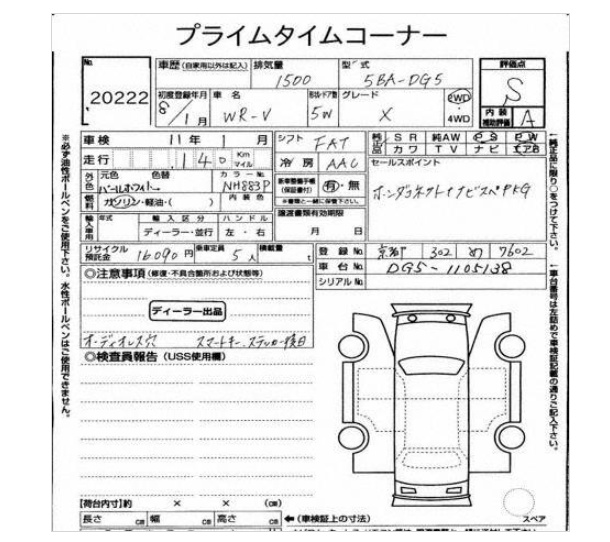 プライムタイムコーナー
No.
20222
車歴 (自家用以外は記入)
排気量
1500
型式
5BA-DG5
評価点
S
初度登録年月
8/1月
車名
WR-V
形状・ドア数
5W
グレード
X
2WD
4WD
内装
補助評価
A
車検
11年1月
シフト
FAT
純正品
SR 純AW PS PW
カワ TV ナビ エアB
走行
140
Km
マイル
冷房
AAC
セールスポイント
外色
元色
色替
パールホワイト→
カラーNo.
NH883P
新車整備手帳
(保証書付)
有・無
※書類と一緒に保管下さい。
燃料
ガソリン・軽油・( )
内装色
譲渡書類有効期限
月 日
輸入車用
年式
輸入区分
ハンドル
ディーラー・並行
左・右
リサイクル
預託金
16090円
乗車定員
5人
積載量
t
登録No.
京都 302 7602
車台No.
DG5-1105138
シリアルNo.
◎注意事項 (修復・不具合箇所および状態等)
ディーラー出品
オーディオレス穴 スマートキー、ステッカー
◎検査員報告 (USS使用欄)
【荷台内寸】約 × × (cm)
長さ cm 幅 cm 高さ cm
←(車検証上の寸法)
スペア
※必ず油性ボールペンをご使用下さい。水性ボールペンはご使用できません。
←純正品に限り○をつけて下さい。
←車台番号は左詰めで車検証記載の通りご記入下さい。